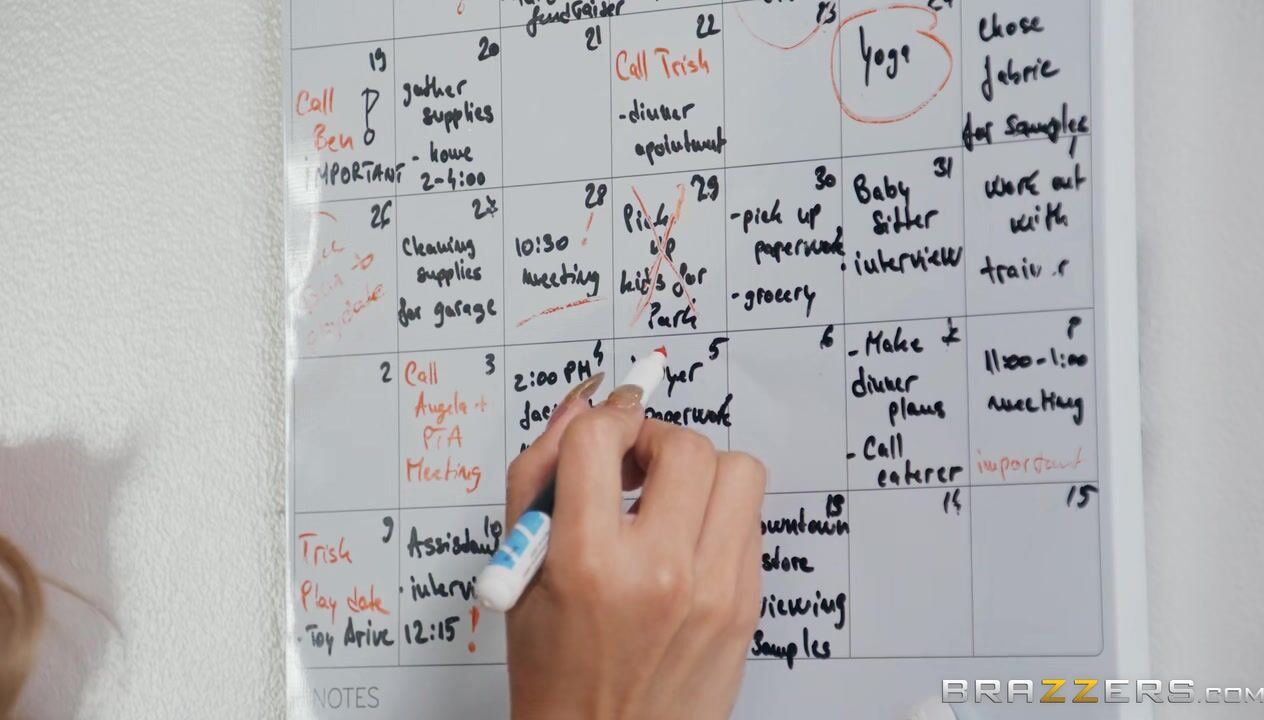 fundraiser
19
Call
Ben
IMPORTANT
20
gather
supplies
- home
2-4:00
21
22
Call Trish
-dinner
apointment
23
Yoga
chose
fabric
for samples
26
27
Cleaning
supplies
for garage
28
10:30 !
meeting
29
Pick
up
kids for
Park
30
-pick up
paperwork
-grocery
31
Baby
Sitter
interview
1
work out
with
2
3
Call
Angela +
PTA
Meeting
4
2:00 PM
5
paperwork
6
7
-Make
dinner
plans
-Call
caterer
8
11:00-1:00
meeting
important
9
Trish
Play date
-Toy Arive
10
12:15 !
13
store
viewing
samples
14
15
NOTES
BRAZZERS.COM